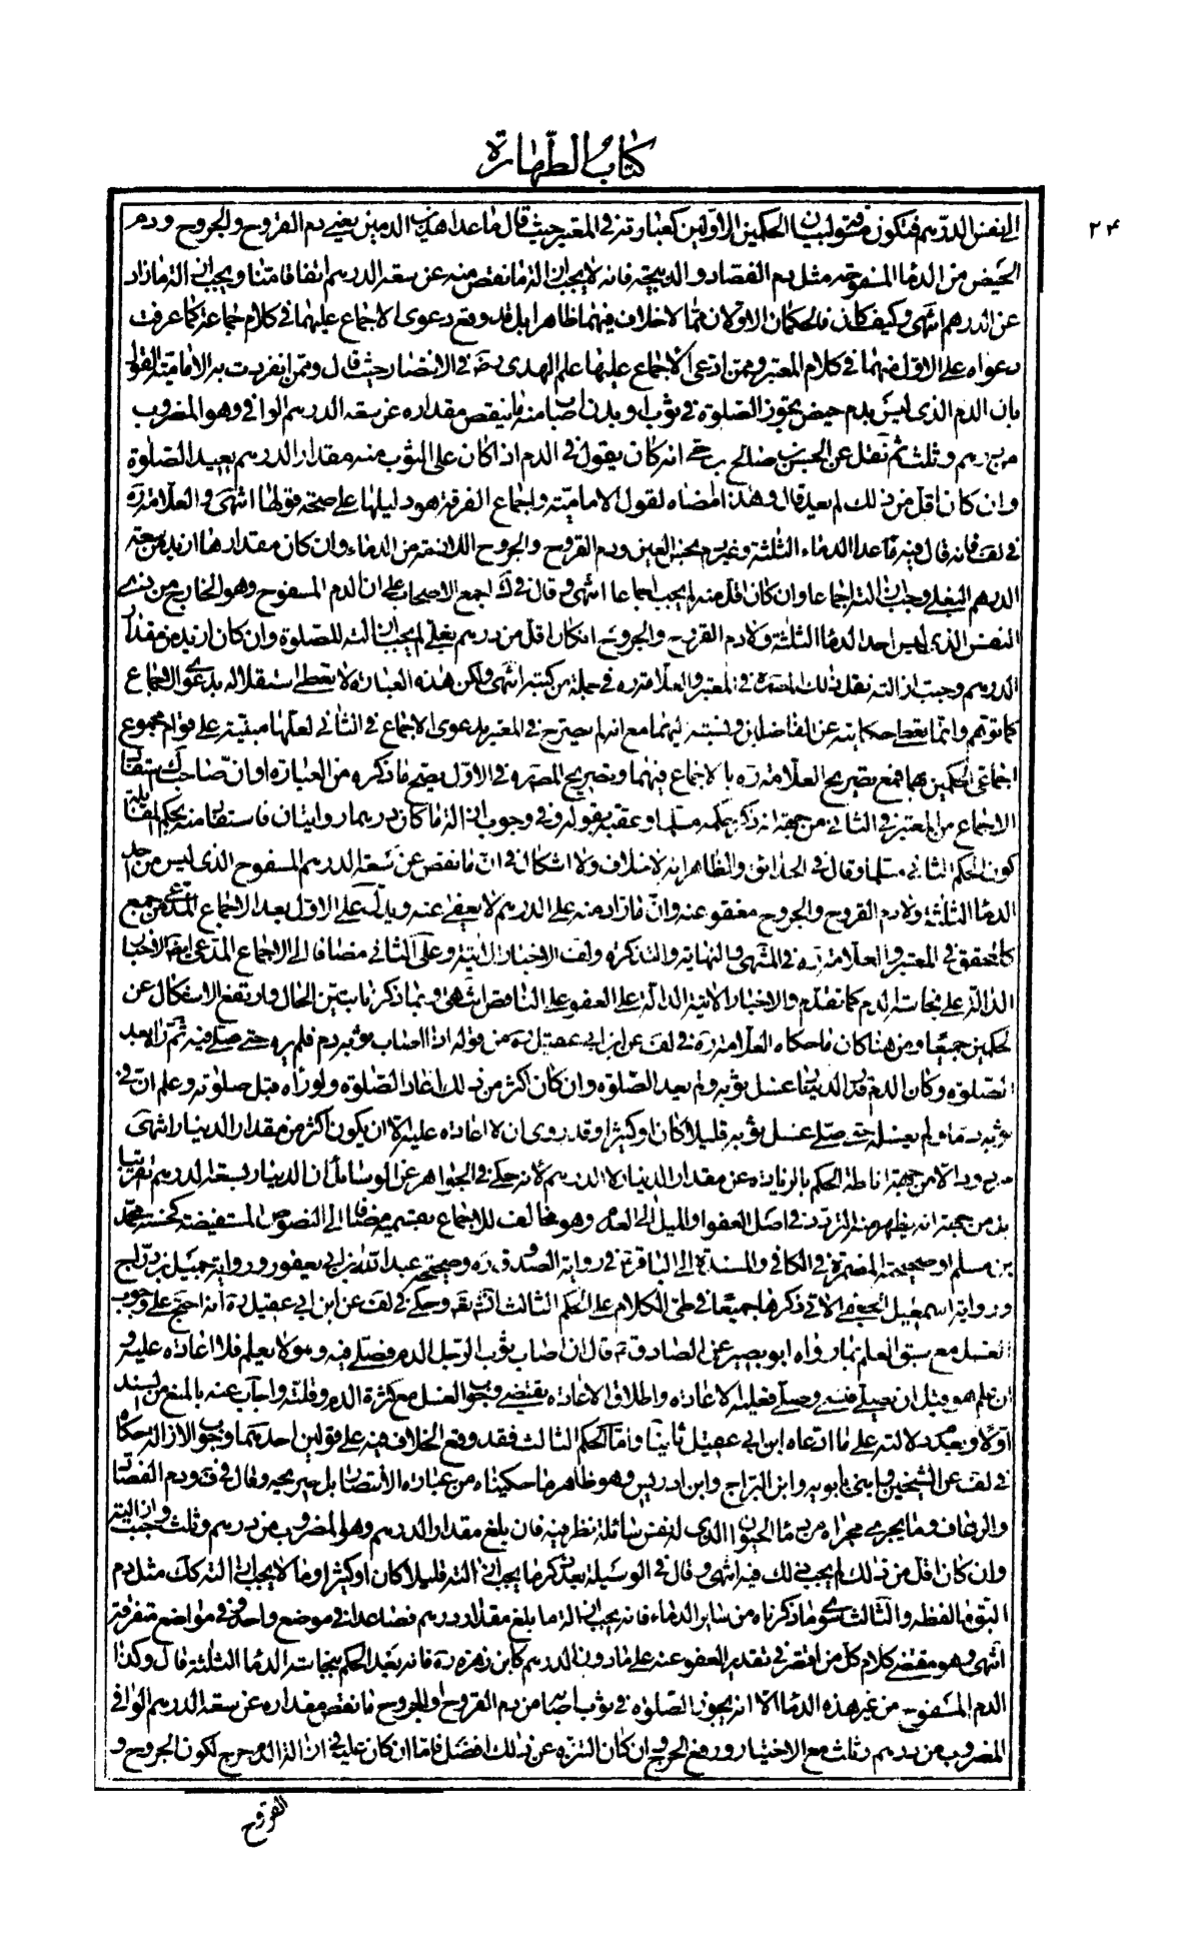 كتاب الطهارة
٢٤
الى نفس الدرهم فتكون مسوقة لبيان الحكمين الاولين كعبارته في المعتبر حيث قال ما عدا هذين الدمين يعني دم القروح والجروح ودم
الحيض من الدماء المسفوحة مثل دم الفصاد والذبيحة فانه لا يجب ازالة ما نقص منه عن سعة الدرهم اتفاقا منا ويجب ازالة ما زاد
عن الدرهم انتهى وكيف كان فالحكمان الاولان مما لا خلاف فيهما ظاهرا بل قد وقع دعوى الاجماع عليهما في كلام جماعة كما عرفت
دعواه على الاول منهما في كلام المعتبر وممن ادعى الاجماع عليها علم الهدى في الانتصار حيث قال وممن انفردت به الامامية القول
بان الدم الذي ليس بدم حيض يجوز الصلوة في ثوب او بدن اصابه منه ما ينقص مقداره عن سعة الدرهم الوافي وهو المضروب
من درهم وثلث ثم نقل عن الحسن بن صالح بن حي انه كان يقول في الدم اذا كان على الثوب منه مقدار الدرهم يعيد الصلوة
وان كان اقل من ذلك لم يعد قال وهذا مضاه لقول الامامية واجماع الفرقة هو دليلها على صحة قولها انتهى والعلامة ره
في لف فانه قال فيه ما عدا الدماء الثلثة وغير دم نجس العين ودم القروح والجروح اللازمة من الدماء وان كان مقدارها ازيد من سعة
الدرهم البغلي وجبت ازالته اجماعا وان كان اقل منه لم يجب اجماعا انتهى وقال في ك اجمع الاصحاب على ان الدم المسفوح وهو الخارج من ذي
النفس الذي ليس احد الدماء الثلثة ولا دم القروح والجروح ان كان اقل من درهم بغلي لم يجب ازالته للصلوة وان كان ازيد من مقدار
الدرهم وجبت ازالته نقل ذلك المصنف ره في المعتبر والعلامة ره في جملة من كتبه انتهى ولكن هذه العبارة لا تعطي استقلاله بدعوى الاجماع
كما توهم وانما تعطي حكايته عن الفاضلين ونسبته اليهما مع انه لم يصرح في المعتبر بدعوى الاجماع في الثاني لعلها مبنية على قوام مجموع
اجماعي الحكمين بهما فمع تصريح العلامة ره بالاجماع فيهما وتصريح المصنف ره في الاول يصح ما ذكره من العبارة او ان صاحب ك استفاد
الاجماع من المعتبر في الثاني من جهة انه ذكر حكمه مسلما وعقبه بقوله وفي وجوب ازالة ما كان درهما روايتان فاستفاد منه بحكم المقابلة
كون الحكم الثاني مسلما وقال في الحدائق والظاهر انه لا خلاف ولا اشكال في ان ما نقص عن سعة الدرهم المسفوح الذي ليس من احد
الدماء الثلثة ولا دم القروح والجروح معفو عنه وان ما زاد منه على الدرهم لا يعفى عنه ويدل على الاول بعد الاجماع المدعى من جمع
كالمحقق في المعتبر والعلامة ره في المنتهى والنهاية والتذكرة ولف الاخبار الاتية وعلى الثاني مضافا الى الاجماع المدعى ايضا الاخبار
الدالة على نجاسة الدم كما تقدم والاخبار الاتية الدالة على العفو على الناقص انتهى وبما ذكرنا تبين الحال وارتفع الاشكال عن
الحكمين جميعا ومن هنا كان ما حكاه العلامة ره في لف عن ابن ابي عقيل ره من قوله اذا اصاب ثوبه دم فلم يره حتى صلى فيه ثم راه بعد
الصلوة وكان الدم قدر الدينار غسل ثوبه ولم يعد الصلوة وان كان اكثر من ذلك اعاد الصلوة ولو راه قبل صلوته وعلم ان في
ثوبه دما ولم يغسله حتى صلى غسل ثوبه قليلا كان او كثيرا وقد روى ان لا اعادة عليه الا ان يكون اكثر من مقدار الدينار انتهى
من جهة اناطة الحكم بالزيادة عن مقدار الدينار لا الدرهم لانه حكي في الجواهر عن الوسائل ان الدينار بسعة الدرهم تقريبا
بل من جهة انه يظهر منه التردد في اصل العفو او الميل الى العدم وهو مخالف للاجماع بقسميه مضافا الى النصوص المستفيضة كحسنة محمد
بن مسلم او صحيحته المضمرة في الكافي والمسندة الى الباقر ع في رواية الصدوق ره وصحيحة عبد الله بن ابي يعفور ورواية جميل بن دراج
ورواية اسمعيل الجعفي الاتي ذكرها جميعا في طي الكلام على الحكم الثالث انش تعالى وحكي في لف عن ابن ابي عقيل ره انه احتج على وجوب
الغسل مع سبق العلم بما رواه ابو بصير عن الصادق ع قال ان اصاب ثوب الرجل الدم فصلى فيه وهو لا يعلم فلا اعادة عليه و
ان علم هو قبل ان يصلي فنسي وصلى فعليه الاعادة واطلاق الاعادة يقتضي وجوب الغسل مع كثرة الدم وقلته واجاب عنه بالمنع من السند
اولا وبعدم دلالته على ما ادعاه ابن ابي عقيل ثانيا واما الحكم الثالث فقد وقع الخلاف فيه على قولين احدهما وجوب الازالة حكاه
في لف عن الشيخين وابني بابويه وابن البراج وابن ادريس وهو ظاهر ما حكيناه من عبارة الانتصار بل صريحه وقال في ف ودم الفصاد
والرعاف وما يجري مجراه من دماء الحيوان الذي له نفس سائلة نظر فيه فان بلغ مقدار الدرهم وهو المضروب من درهم وثلث وجب ازالته
وان كان اقل من ذلك لم يجب ذلك فيه انتهى وقال في الوسيلة بعد ذكر ما يجب ازالته قليلا كان او كثيرا وما لا يجب ازالته كك مثل دم
البق ما لفظه والثالث سوى ما ذكرناه من ساير الدماء فانه يجب ازالة ما بلغ مقدار درهم فصاعدا في موضع واحد وفي مواضع متفرقة
انتهى وهو مقتضى كلام كل من اقتصر في تقدير العفو عنه على ما دون الدرهم كابن زهرة ره فانه بعد الحكم بنجاسة الدماء الثلثة قال وكذا
الدم المسفوح من غير هذه الدماء الا انه يجوز الصلوة في ثوب اصابه من دم القروح او الجروح ما نقص مقداره عن سعة الدرهم الوافي
المضروب من درهم وثلث مع الاختيار ورفع الحرج وان كان التنزه عن ذلك افضل فاما ان كان عليه في ازالة الدم حرج لكون الجروح و
القروح